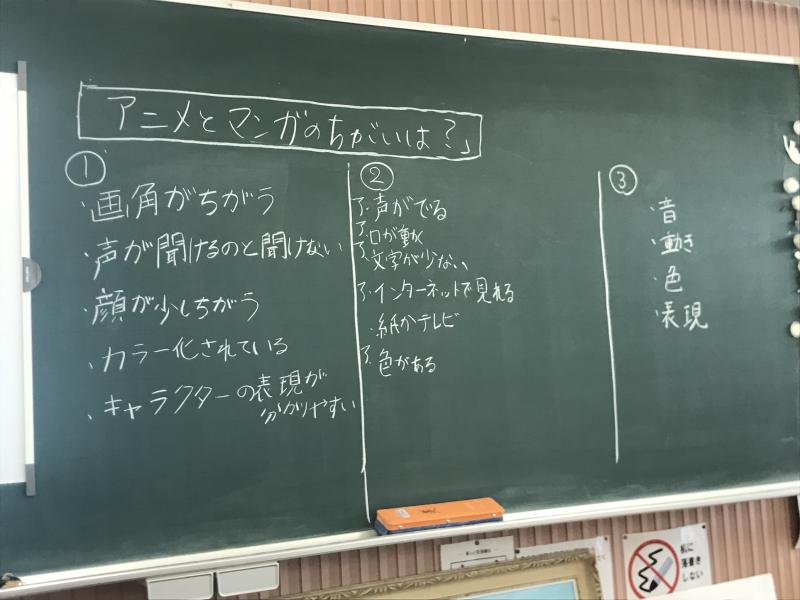 「アニメとマンガのちがいは？」
①
・画角がちがう
・声が聞けるのと聞けない
・顔が少しちがう
・カラー化されている
・キャラクターの表現が
分かりやすい
②
ア・声がでる
ア・口が動く
ア・文字が少ない
ア・インターネットで見れる
・紙かテレビ
ア・色がある
③
・音
・動き
・色
・表現
机に
落書き
しない